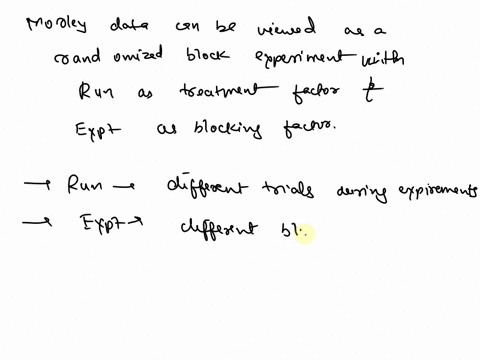 Morley data can be viewed as a
randomized block experiment with
Run as treatment factor &
Expt as blocking factor.
→ Run → different trials during expirements
→ Expt → different bl